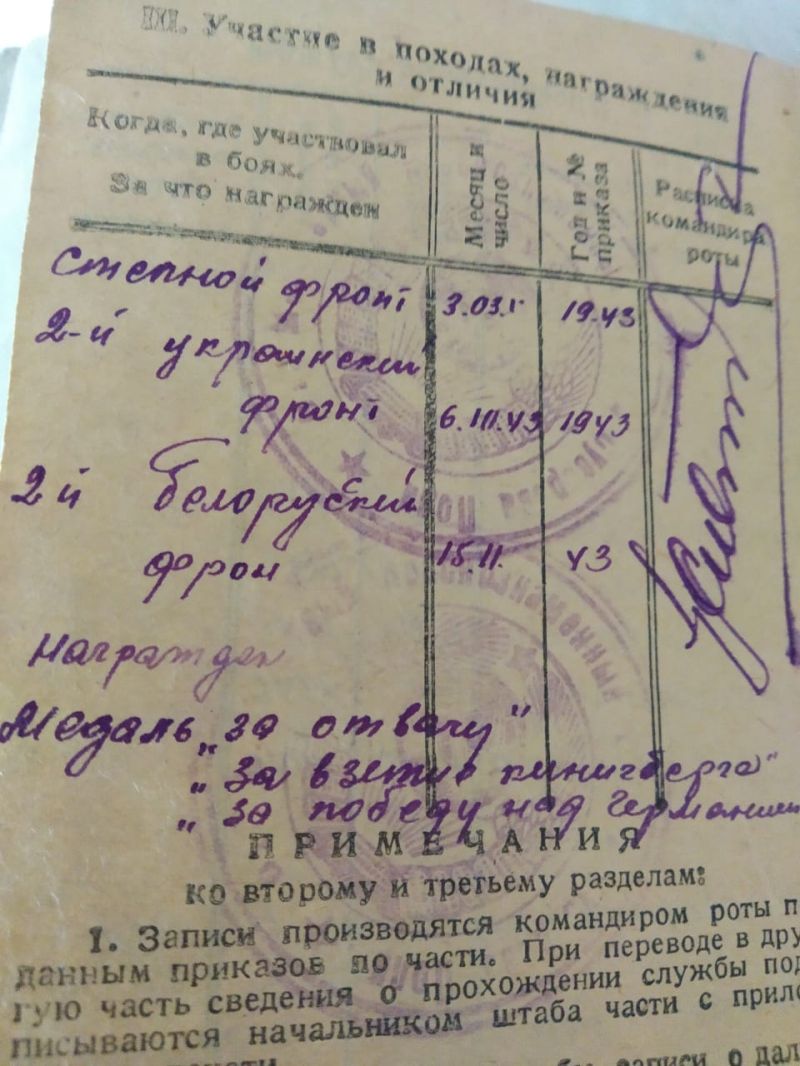 III. Участие в походах, награждения
и отличия
Когда, где участвовал
в боях.
За что награжден
Месяц и
число
Год и №
приказа
Расписка
командира
роты
Степной фронт 3.03. 1943
2-й украинский
фронт 6.III.43 1943
2й белоруский
фрон 15.11. 43
Награжден
Медаль „за отвагу"
„за взятие кинигберга"
„за победу над Германии
ПРИМЕЧАНИЯ
ко второму и третьему разделам:
1. Записи производятся командиром роты п
данным приказов по части. При переводе в дру
гую часть сведения о прохождении службы под
писываются начальником штаба части с прило
записи о дал